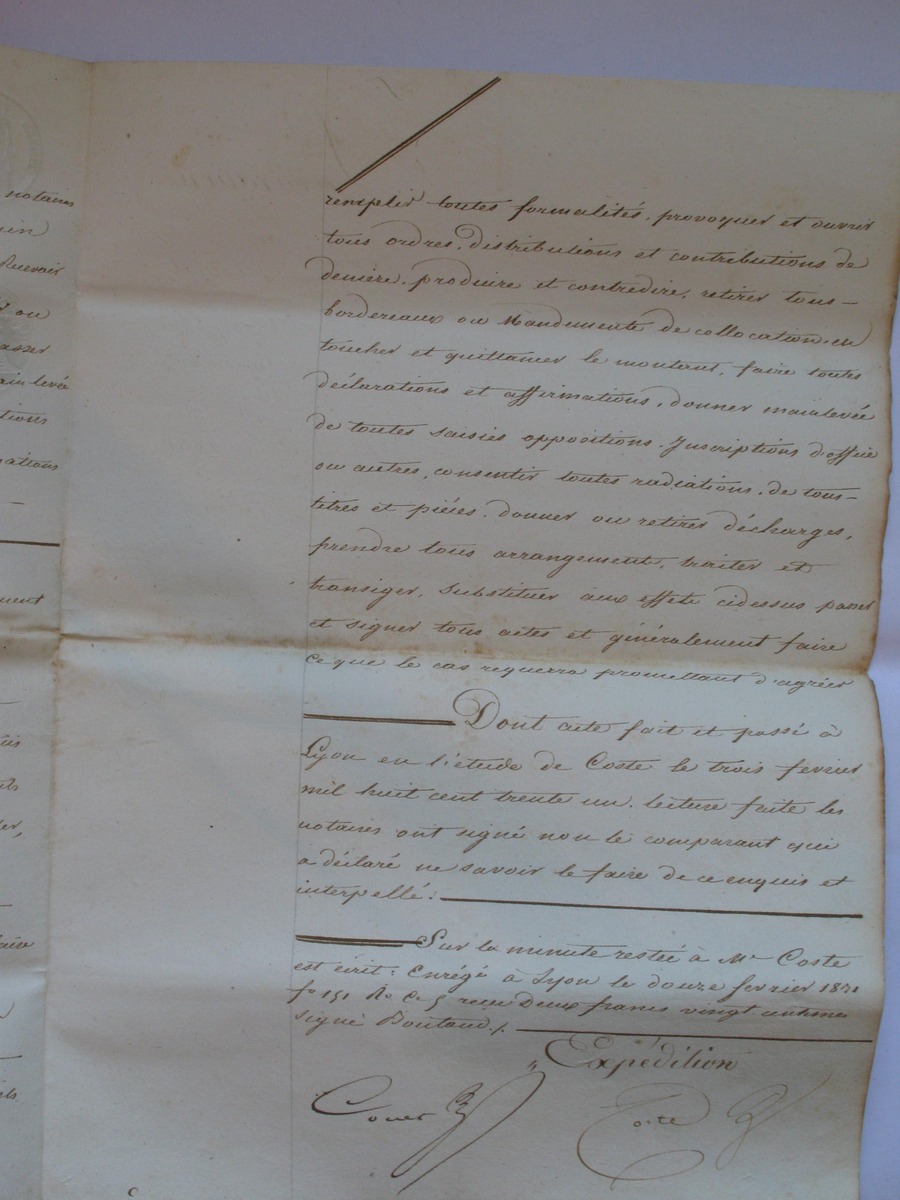 notaires
Recevoir
ou
remplir toutes formalités, provoquer et ouvrir
tous ordres, distributions et contributions de
deniers, produire et contredire, retirer tous
bordereaux ou Mandements de collocation en
toucher et quittancer le montant, faire toutes
déclarations et affirmations, donner mainlevée
de toutes saisies oppositions Inscriptions d'office
ou autres, consentir toutes radiations, de tous
titres et pièces, donner ou retirer décharges,
prendre tous arrangement, traiter et
transiger, substituer aux effets cidessus passer
et signer tous actes et généralement faire
ce que le cas requerra promettant d'agréer
Dont acte fait et passé à
Lyon en l'étude de Coste le trois fevrier
mil huit cent trente un. lecture faite les
notaires ont signé non le comparant qui
a déclaré ne savoir le faire de ce enquis et
interpellé.
Sur la minute restée à Me Coste
est écrit : Enrégé à Lyon le douze fevrier 1831
fo 151 Ro C. 5 reçu Deux francs vingt centimes
signé Boutaud
Expédition
Coste